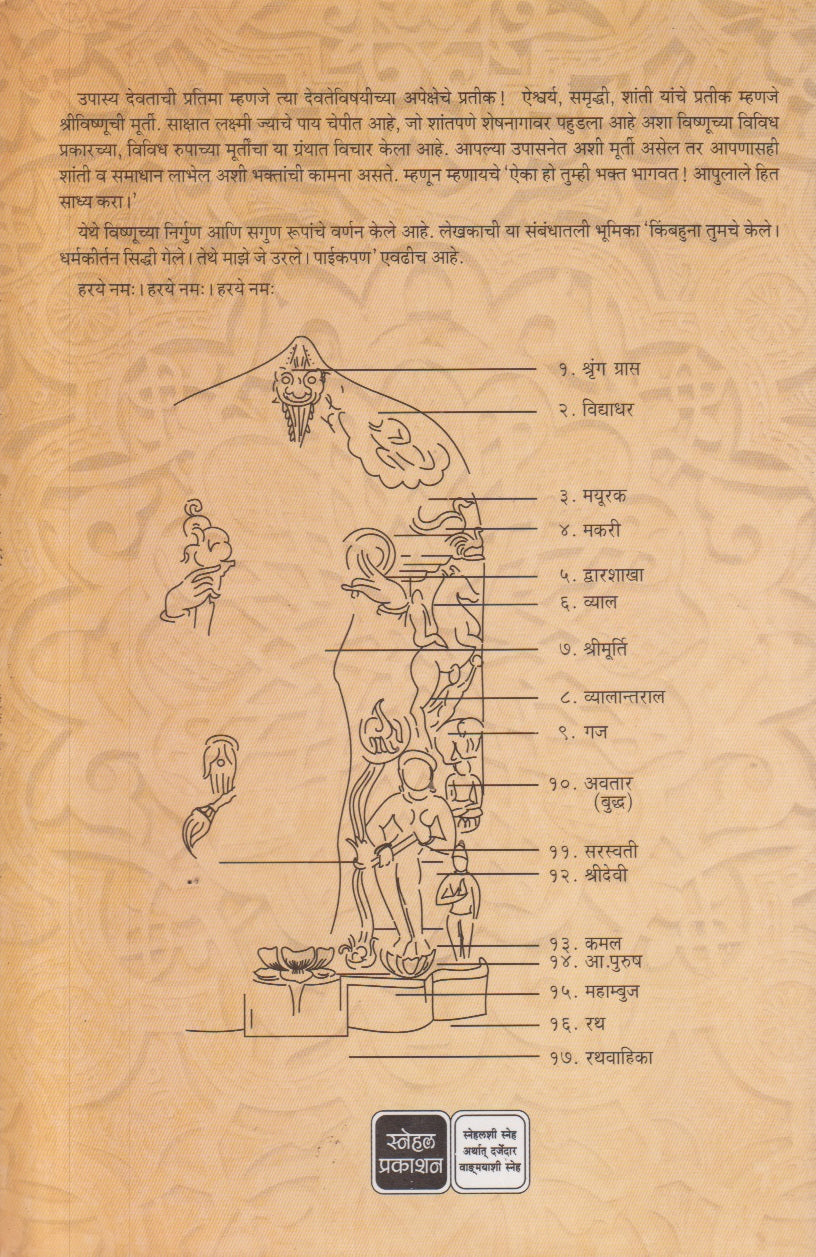 उपास्य देवताची प्रतिमा म्हणजे त्या देवतेविषयीच्या अपेक्षेचे प्रतीक! ऐश्वर्य, समृद्धी, शांती यांचे प्रतीक म्हणजे
श्रीविष्णूची मूर्ती. साक्षात लक्ष्मी ज्याचे पाय चेपीत आहे, जो शांतपणे शेषनागावर पहुडला आहे अशा विष्णूच्या विविध
प्रकारच्या, विविध रुपाच्या मूर्तींचा या ग्रंथात विचार केला आहे. आपल्या उपासनेत अशी मूर्ती असेल तर आपणासही
शांती व समाधान लाभेल अशी भक्तांची कामना असते. म्हणून म्हणायचे ‘ऐका हो तुम्ही भक्त भागवत! आपुलाले हित
साध्य करा।’
येथे विष्णूच्या निर्गुण आणि सगुण रूपांचे वर्णन केले आहे. लेखकाची या संबंधातली भूमिका ‘किंबहुना तुमचे केले।
धर्मकीर्तन सिद्धी गेले। तेथे माझे जे उरले। पाईकपण’ एवढीच आहे.
हरये नमः। हरये नमः। हरये नमः
१. श्रृंग ग्रास
२. विद्याधर
३. मयूरक
४. मकरी
५. द्वारशाखा
६. व्याल
७. श्रीमूर्ति
८. व्यालान्तराल
९. गज
१०. अवतार
(बुद्ध)
११. सरस्वती
१२. श्रीदेवी
१३. कमल
१४. आ.पुरुष
१५. महाम्बुज
१६. रथ
१७. रथवाहिका
स्नेहल
प्रकाशन
स्नेहलशी स्नेह
अर्थात् दर्जेदार
वाङ्मयाशी स्नेह